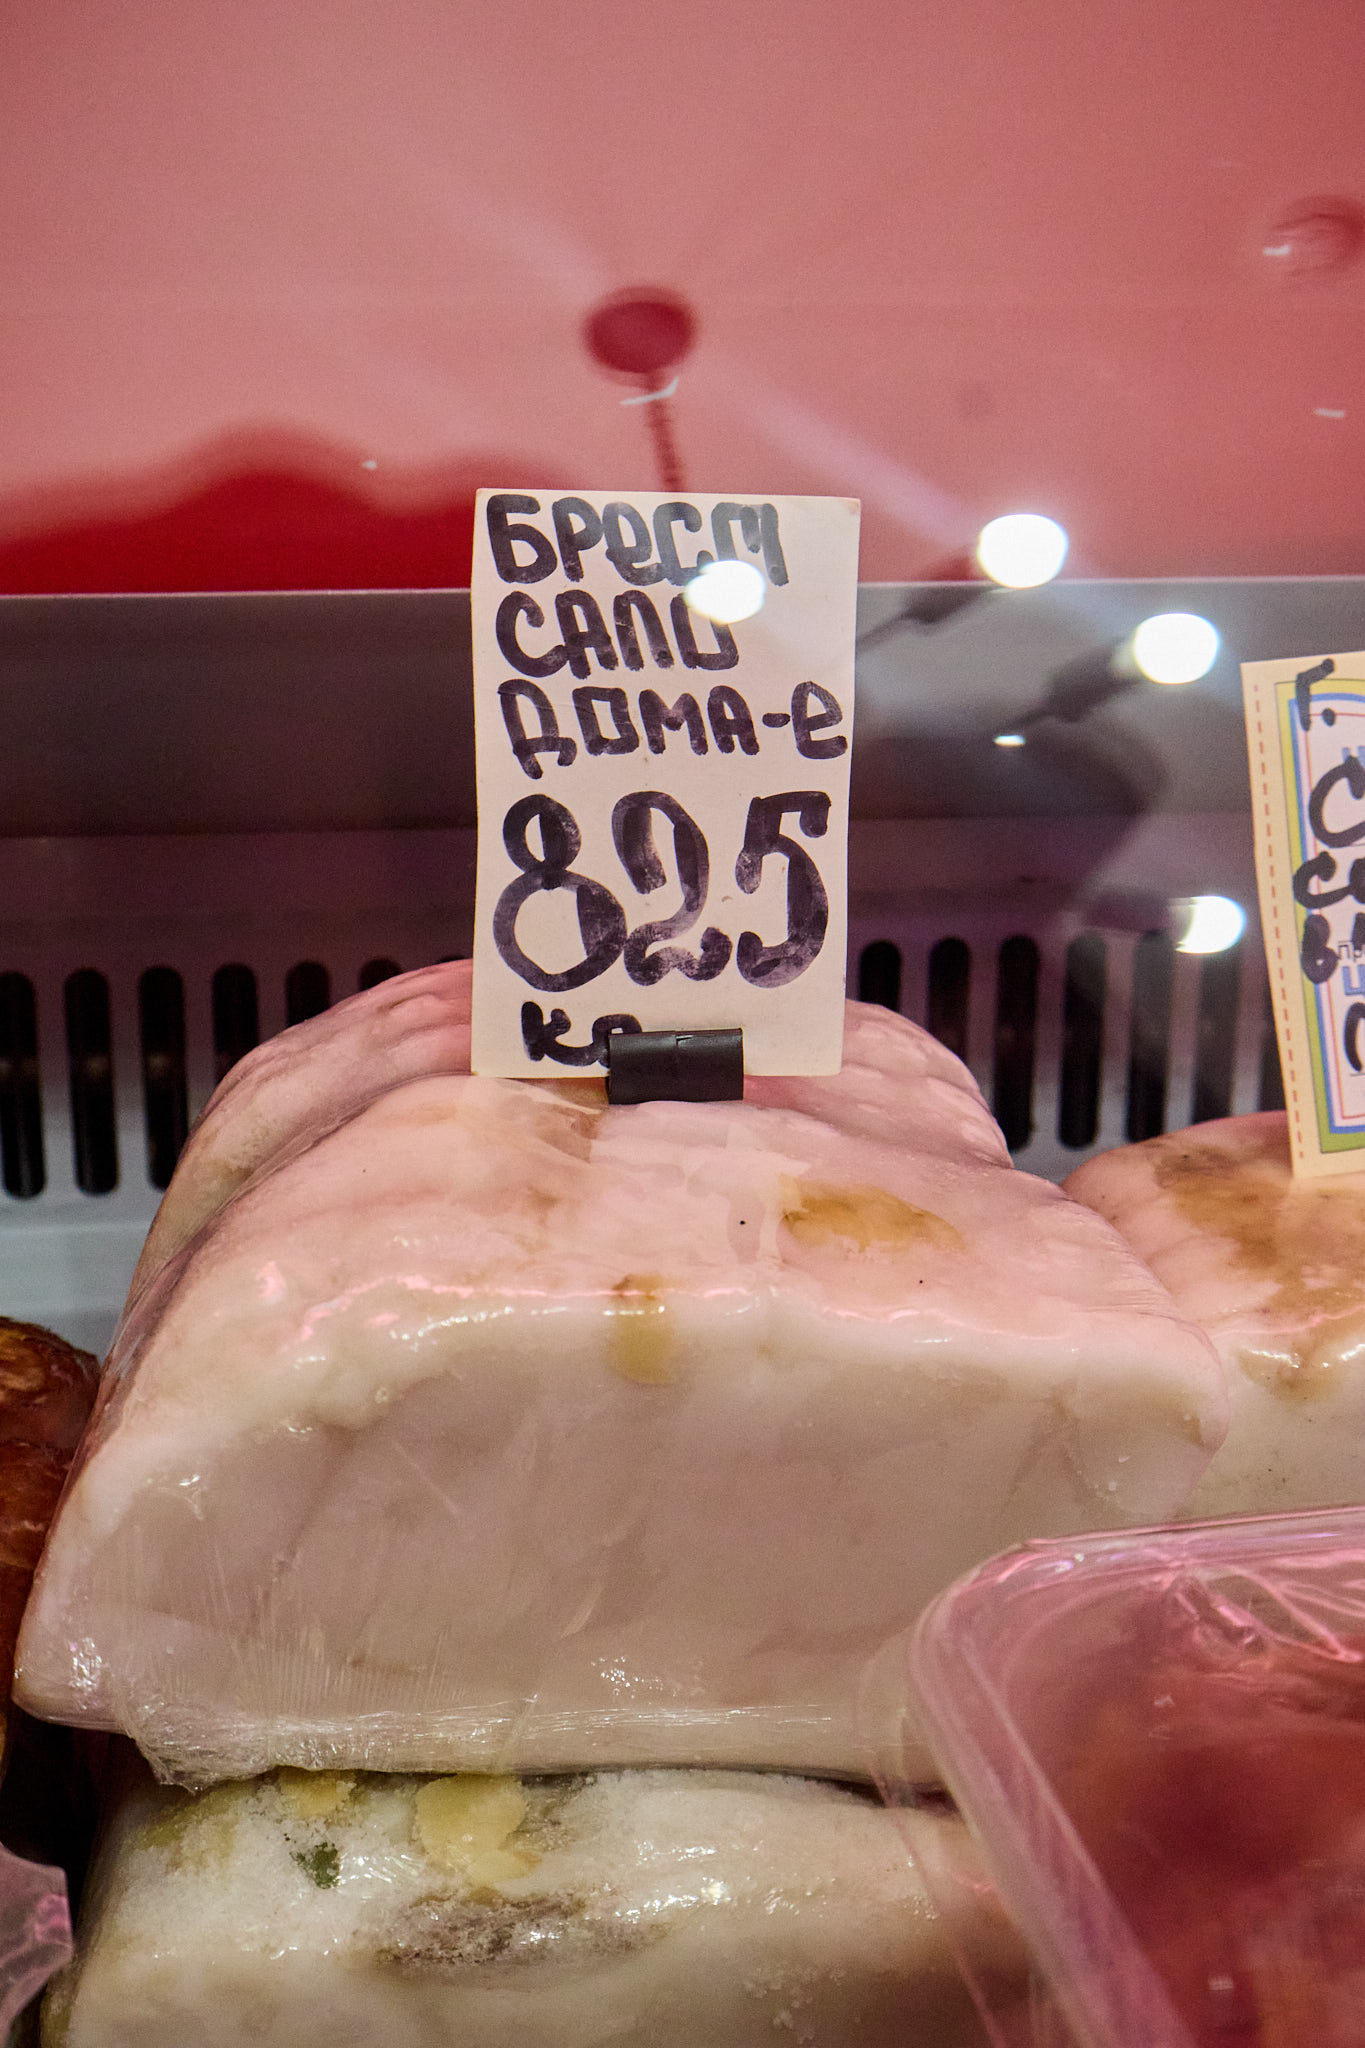 БРеСТ
САЛО
ДОМА-е
825
кг
Г.